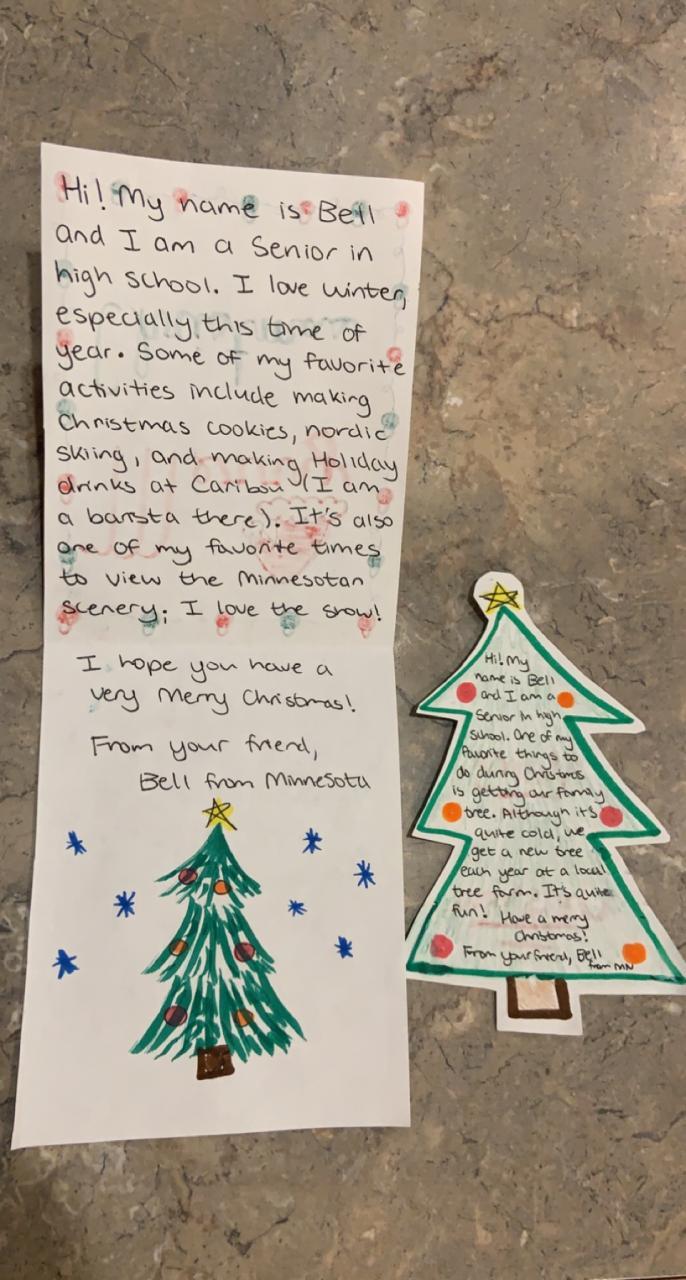 Hi! My name is Bell
and I am a Senior in
high school. I love winter,
especially this time of
year. Some of my favorite
activities include making
Christmas cookies, nordic
skiing, and making Holiday
drinks at Caribou (I am
a barista there). It's also
one of my favorite times
to view the Minnesotan
scenery; I love the snow!
I hope you have a
very Merry Christmas!
From your friend,
Bell from Minnesota
Hi! My
name is Bell
and I am a
Senior in high
school. One of my
favorite things to
do during Christmas
is getting our family
tree. Although it's
quite cold, we
get a new tree
each year at a local
tree farm. It's quite
fun! Have a merry
Christmas!
From your friend, Bell
from MN